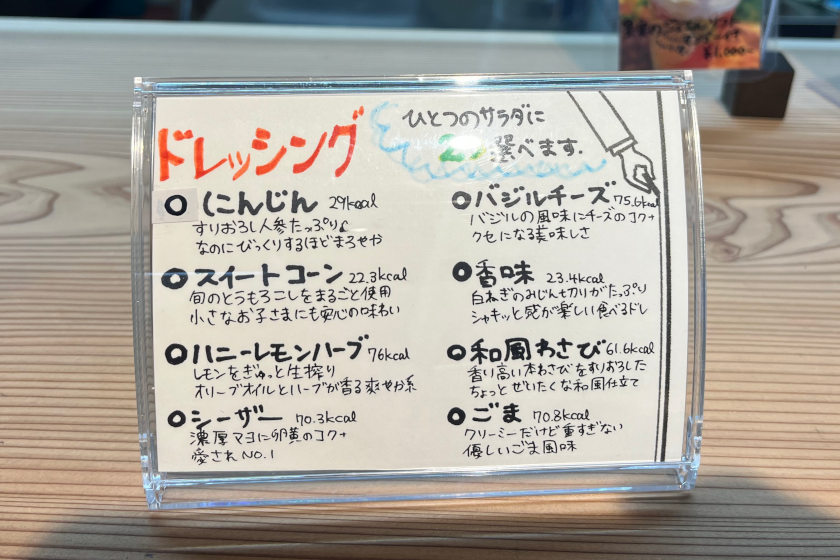 ドレッシング
ひとつのサラダに
2つ選べます.
にんじん 29kcal
すりおろし人参たっぷり
なのにびっくりするほどまろやか
スイートコーン 22.3kcal
旬のとうもろこしをまるごと使用
小さなお子さまにも安心の味わい
ハニーレモンハーブ 76kcal
レモンをぎゅっと生搾り
オリーブオイルとハーブが香る爽やか系
シーザー 70.3kcal
濃厚マヨに卵黄のコク+
愛されNO.1
バジルチーズ 75.6kcal
バジルの風味にチーズのコク+
クセになる美味しさ
香味 23.4kcal
白ねぎのみじん切りがたっぷり
シャキッと感が楽しい食べるドレ
和風わさび 61.6kcal
香り高い本わさびをすりおろした
ちょっとぜいたくな和風仕立て
ごま 70.8kcal
クリーミーだけど重すぎない
優しいごま風味
¥1,000